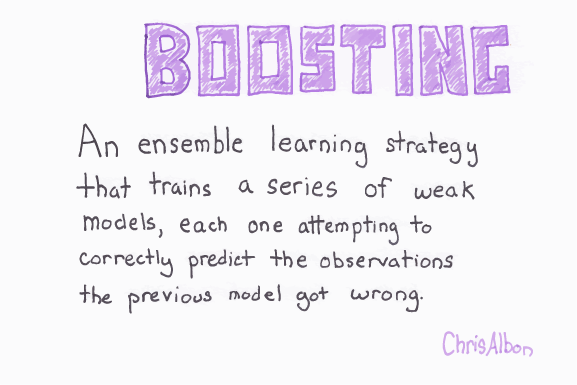 BOOSTING
An ensemble learning strategy
that trains a series of weak
models, each one attempting to
correctly predict the observations
the previous model got wrong.
ChrisAlbon